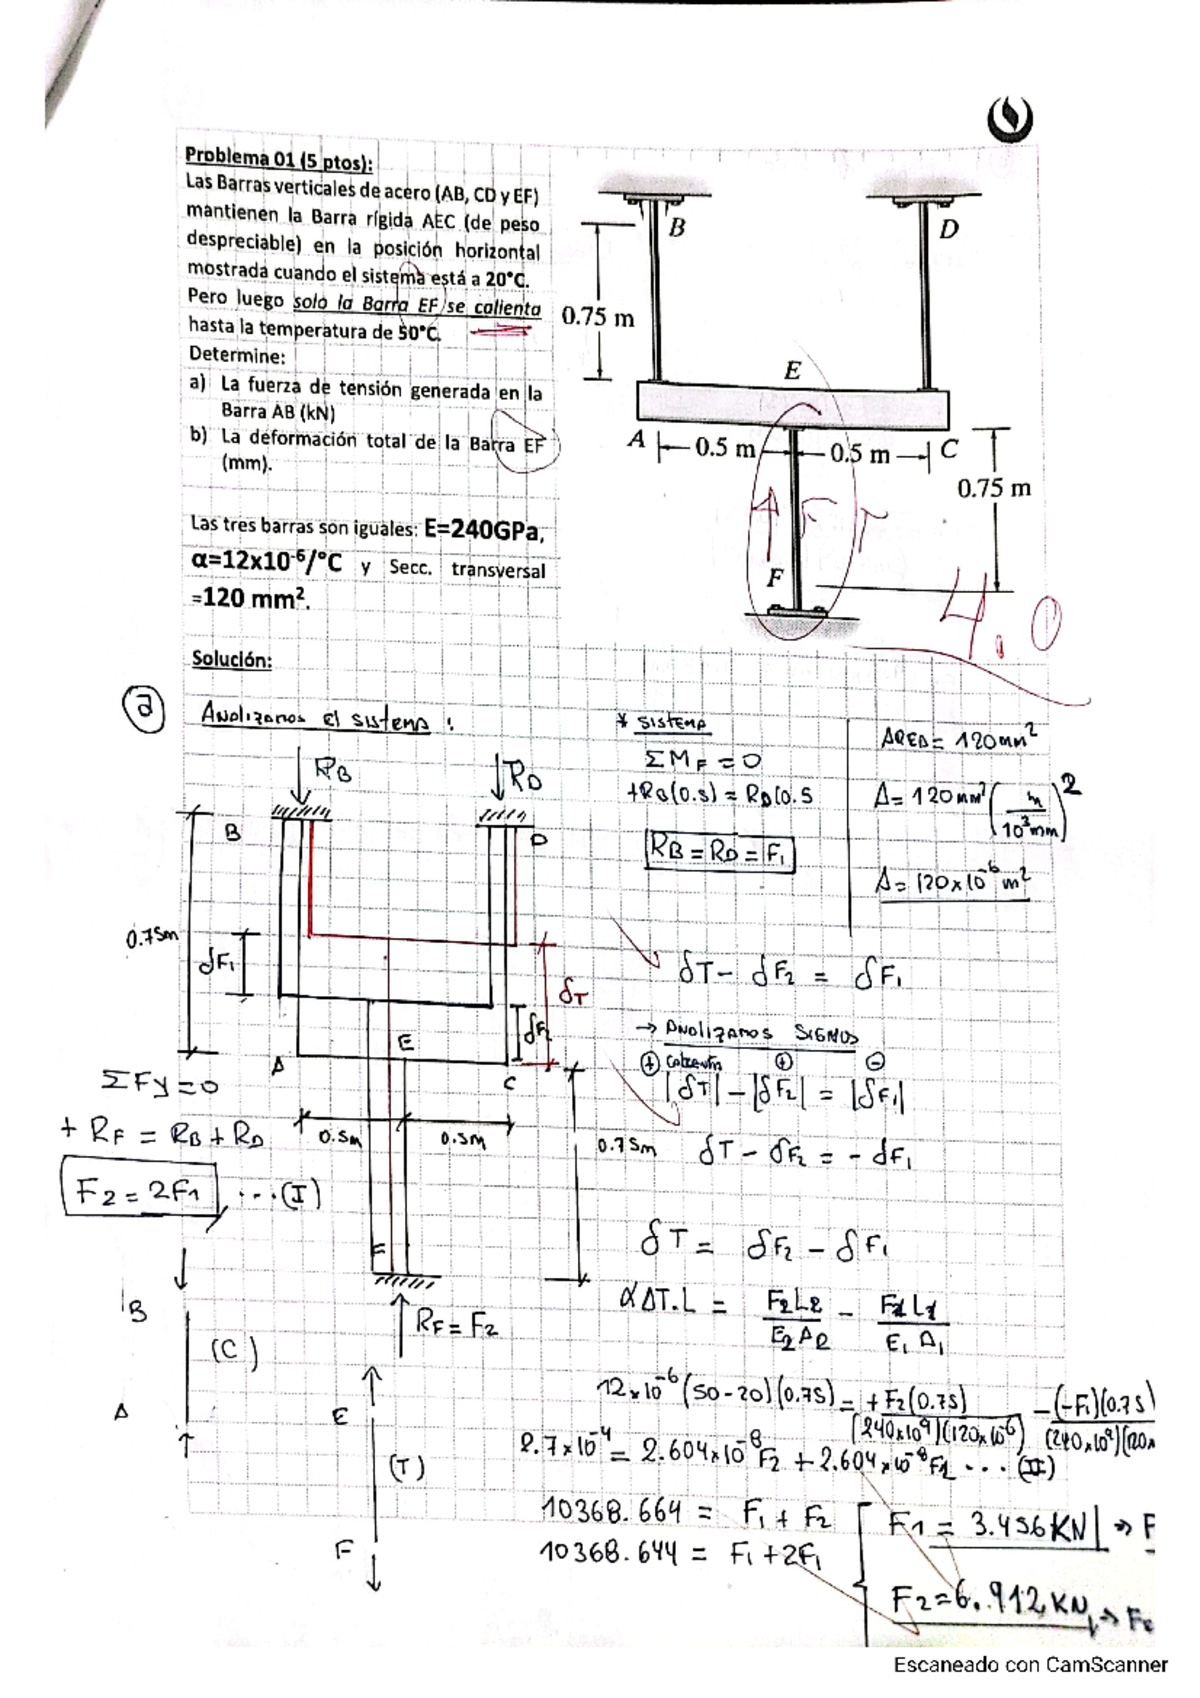 Problema 01 (5 ptos):
Las Barras verticales de acero (AB, CD y EF)
mantienen la Barra rígida AEC (de peso
despreciable) en la posición horizontal
mostrada cuando el sistema está a 20°C.
Pero luego solo la Barra EF se calienta
hasta la temperatura de 50°C.
Determine:
a) La fuerza de tensión generada en la
Barra AB (kN)
b) La deformación total de la Barra EF
(mm).
Las tres barras son iguales: E=240GPa,
α=12x10⁻⁶/°C y Secc. transversal
=120 mm².
B
D
0.75 m
E
A
0.5 m
0.5 m
C
0.75 m
F
F T
4.0
Solución:
a
Analizamos el sistema :
RB
RD
B
D
0.75m
δF1
δT
δF2
A
E
C
0.5m
0.5m
0.75m
F
RF = F2
ΣFy = 0
+ RF = RB + RD
F2 = 2F1 ...(I)
B
(C)
A
E
(T)
F
* SISTEMA
ΣMF = 0
+RB(0.5) = RD(0.5
RB = RD = F1
AREA = 120mm²
A = 120 mm² (m/10³mm)²
A = 120x10⁻⁶ m²
δT - δF2 = δF1
→ Analizamos SIGNOS
⊕ ⊕ ⊖
|δT| - |δF2| = |δF1|
δT - δF2 = - δF1
δT = δF2 - δF1
αΔT.L = F2L2/E2A2 - F1L1/E1A1
12x10⁻⁶(50-20)(0.75) = +F2(0.75)/(240x10⁹)(120x10⁻⁶) - (-F1)(0.75)/(240x10⁹)(120x
2.7x10⁻⁴ = 2.604x10⁻⁸F2 + 2.604x10⁻⁸F1 ... (II)
10368.664 = F1 + F2
10368.644 = F1 + 2F1
F1 = 3.456KN ⇒ F
F2 = 6.912KN ⇒ F
Escaneado con CamScanner